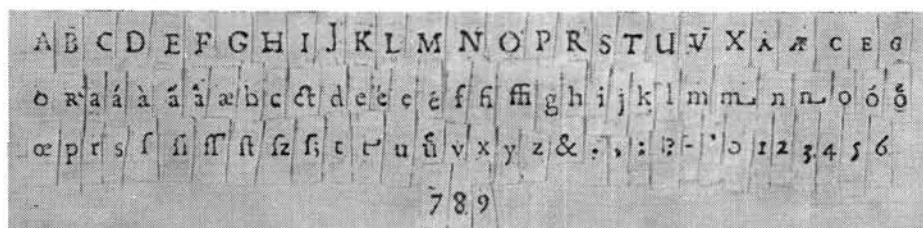 A B C D E F G H I J K L M N O P R S T U V X A Æ C E G
O R a á à ã â æ b c ct d e è ę é f fi ffi g h i j k l m m n n o ó ő
œ p r s ſ ſi ſſ ſt ſz ſ; t t u ű v x y z & . , : !? - ' ɔ 1 2 3 4 5 6
7 8 9